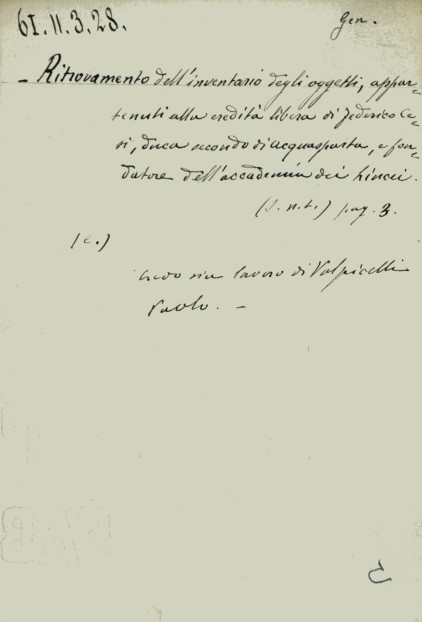 61.11.3.28.
Gen.
- Ritrovamento dell'inventario degli oggetti, appar-
tenuti alla eredità libera di Federico Ce-
si, duca secondo di Acquasparta, e fon-
datore dell'accademia dei Lincei.
(S. n. t.) pag. 3.
(c.)
credo sia lavoro di Volpicelli
Paolo. -